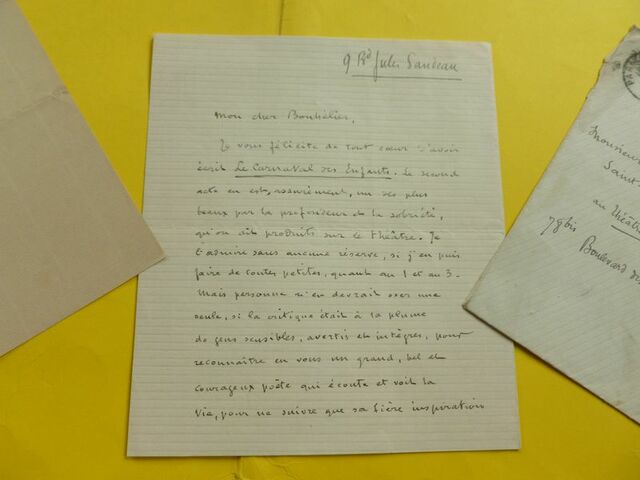 9 Bd Jules Sandeau
Mon cher Bouhélier,
Je vous félicite de tout cœur d'avoir
écrit Le Carnaval des Enfants. Le second
acte en est, assurément, un des plus
beaux par la profondeur de la sobriété,
qu'on ait produits sur le théâtre. Je
l'admire sans aucune réserve, si j'en puis
faire de toutes petites, quant au 1 et au 3.
Mais personne n'en devrait oser une
seule, si la critique était à la plume
de gens sensibles, avertis et intègres, pour
reconnaître en vous un grand, bel et
courageux poète qui écoute et voit la
Vie, pour ne suivre que sa fière inspiration
Monsieur
Saint-
au théâtre
78bis
Boulevard des